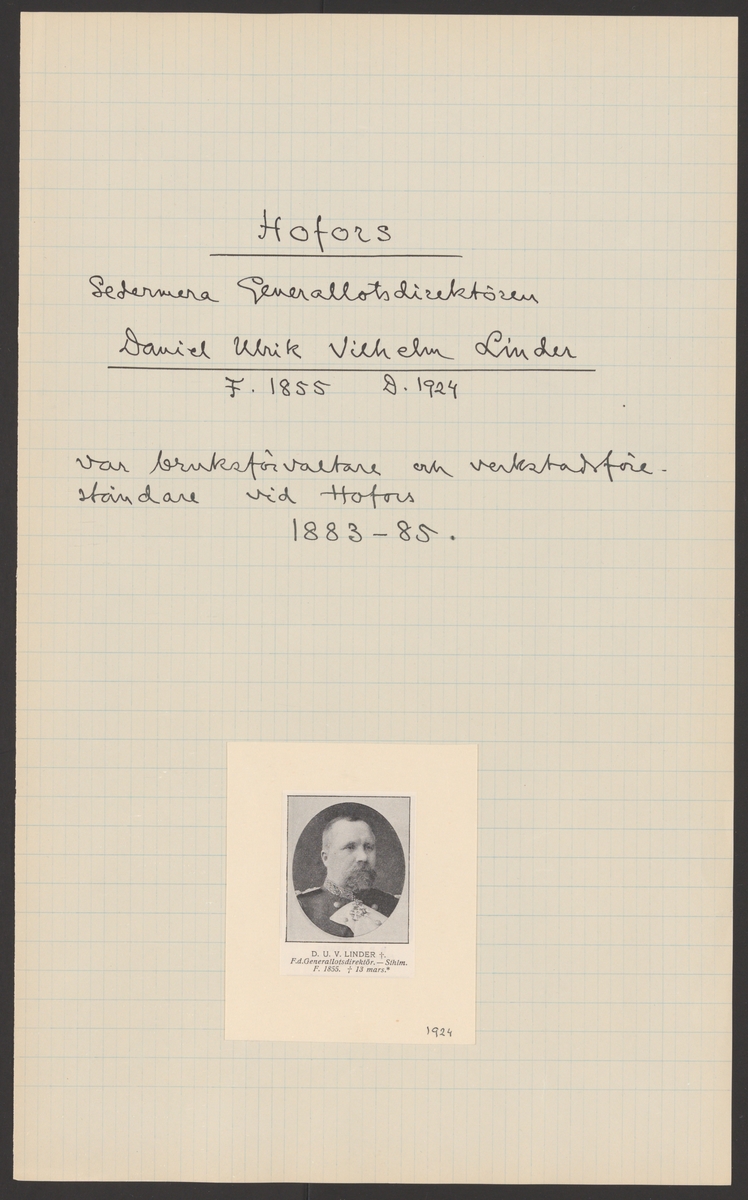 Hofors
Sedermera Generallotsdirektören
Daniel Ulrik Vilhelm Linder
F. 1855 D. 1924
var bruksförvaltare och verkstadsföre-
ståndare vid Hofors
1883-85.
D. U. V. LINDER †.
F.d.Generallotsdirektör. — Sthlm.
F. 1855. † 13 mars.*
1924